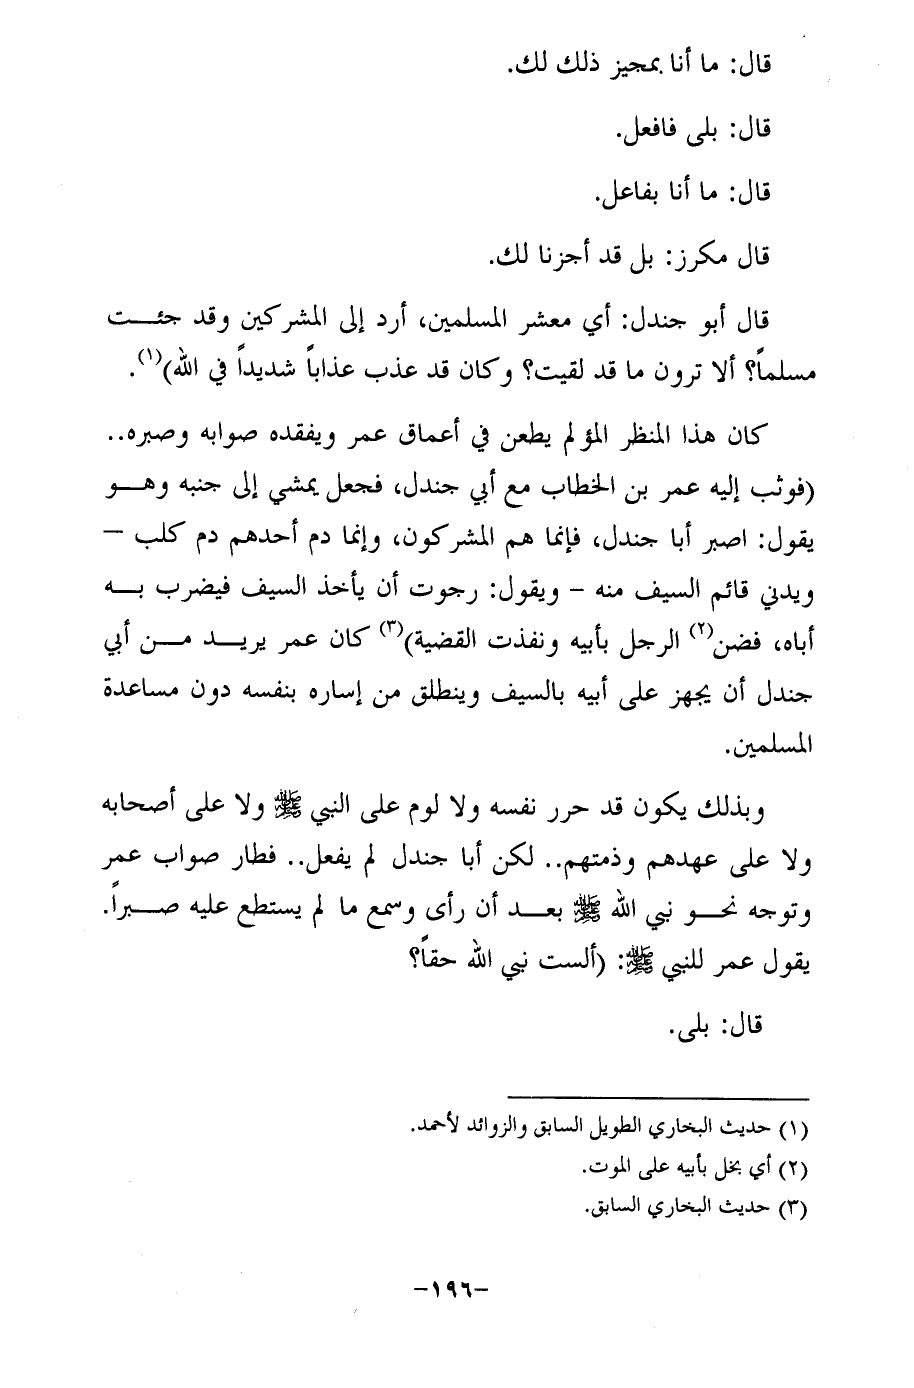 قال: ما أنا بمجيز ذلك لك.
قال: بلى فافعل.
قال: ما أنا بفاعل.
قال مكرز: بل قد أجزنا لك.
قال أبو جندل: أي معشر المسلمين، أرد إلى المشركين وقد جئت
مسلماً؟ ألا ترون ما قد لقيت؟ وكان قد عذب عذاباً شديداً في الله)(١).
كان هذا المنظر المؤلم يطعن في أعماق عمر ويفقده صوابه وصبره..
(فوثب إليه عمر بن الخطاب مع أبي جندل، فجعل يمشي إلى جنبه وهو
يقول: اصبر أبا جندل، فإنما هم المشركون، وإنما دم أحدهم دم كلب –
ويدني قائم السيف منه – ويقول: رجوت أن يأخذ السيف فيضرب به
أباه، فضن(٢) الرجل بأبيه ونفذت القضية)(٣) كان عمر يريد من أبي
جندل أن يجهز على أبيه بالسيف وينطلق من إساره بنفسه دون مساعدة
المسلمين.
وبذلك يكون قد حرر نفسه ولا لوم على النبي ﷺ ولا على أصحابه
ولا على عهدهم وذمتهم.. لكن أبا جندل لم يفعل.. فطار صواب عمر
وتوجه نحو نبي الله ﷺ بعد أن رأى وسمع ما لم يستطع عليه صبراً.
يقول عمر للنبي ﷺ: (ألست نبي الله حقاً؟
قال: بلى.
(١) حديث البخاري الطويل السابق والزوائد لأحمد.
(٢) أي بخل بأبيه على الموت.
(٣) حديث البخاري السابق.
-١٩٦-